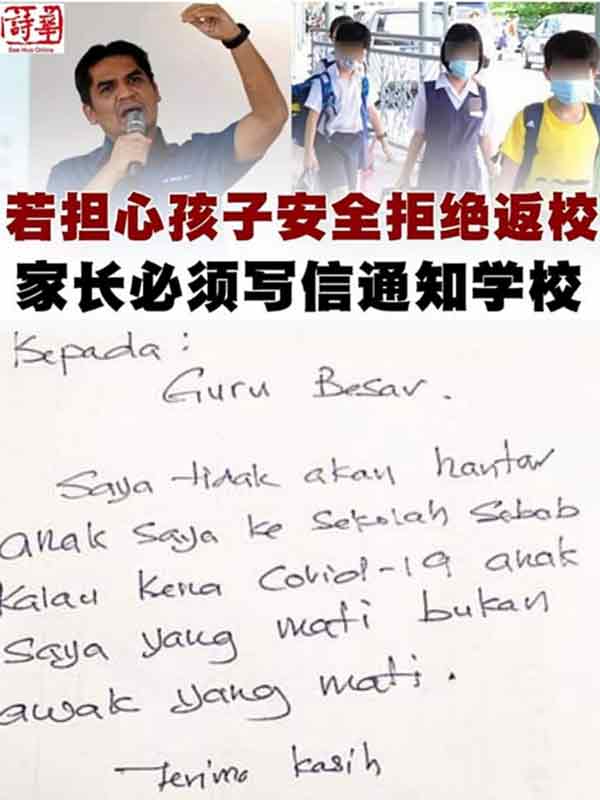 詩華
See Hua Online
若担心孩子安全拒绝返校
家长必须写信通知学校
Kepada :
Guru Besar.
Saya tidak akan hantar
anak saya ke sekolah sebab
kalau kena Covid-19 anak
saya yang mati bukan
awak yang mati.
Terima kasih